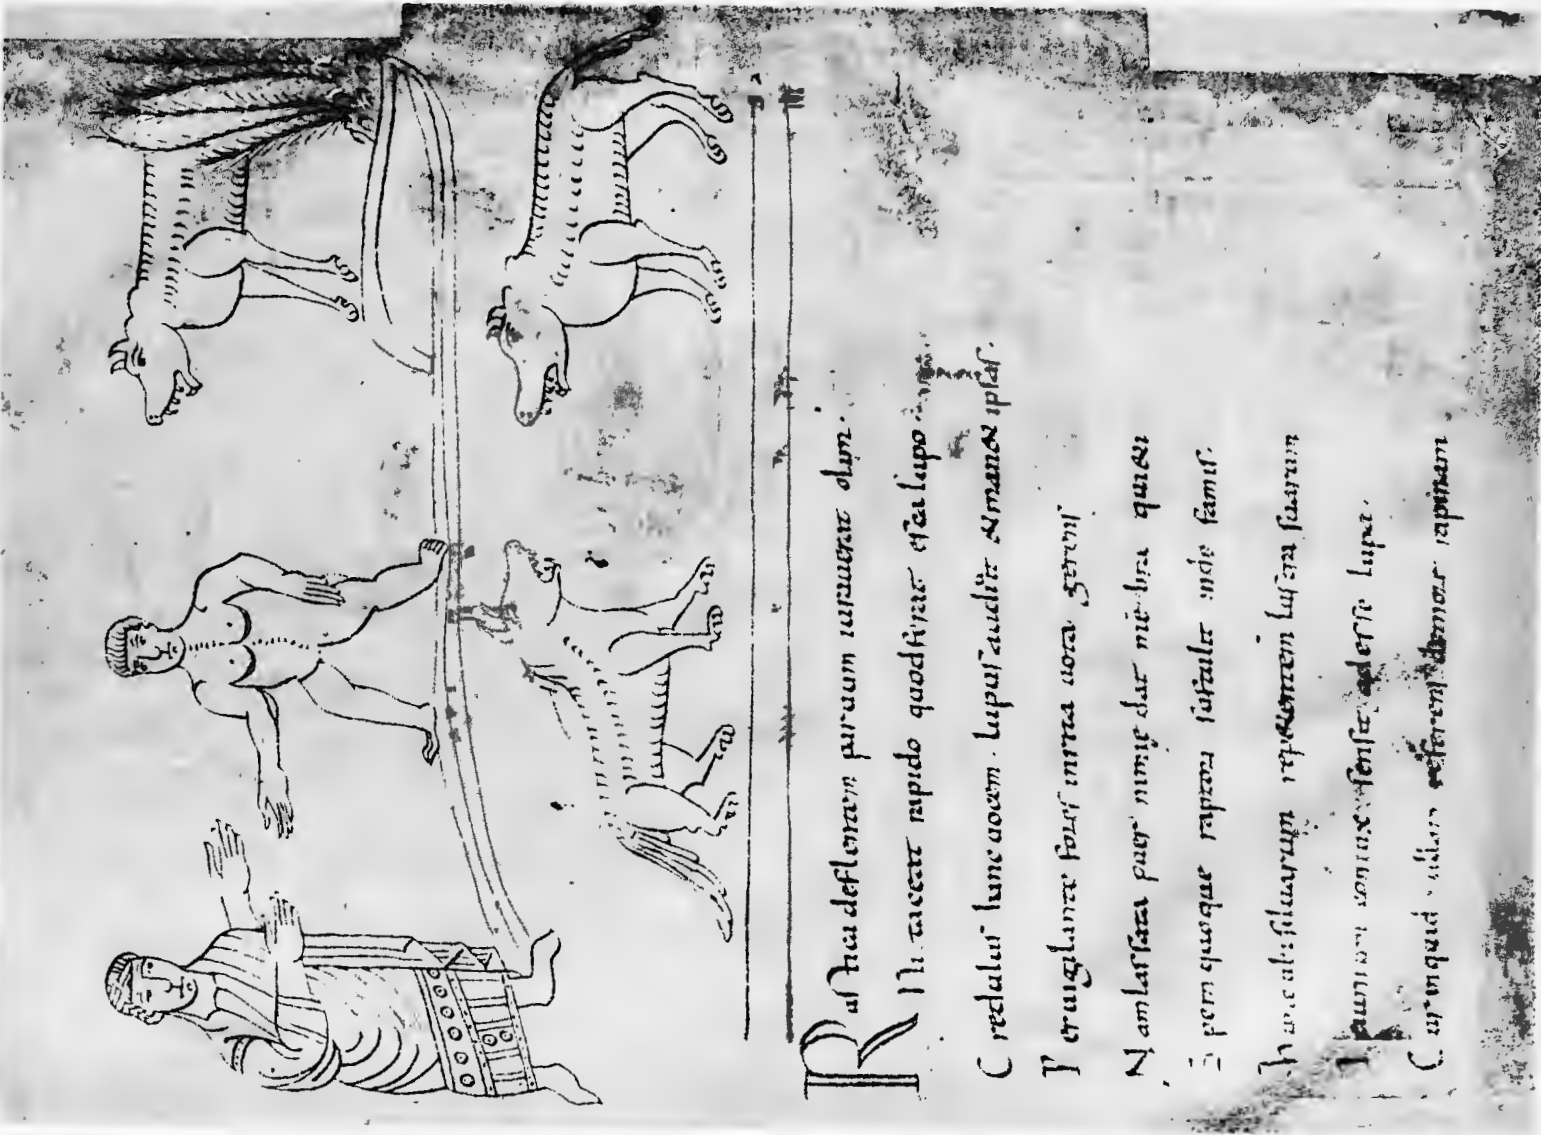 Rustica deflentem paruum iurauerat olim.
Ni taceat rapido quod esca lupo
Credulus hanc uocem. lupus audiit & man& ipsas.
Peruigil ante fores inrita uota gerens
Nam lassata puer nimię dat mēbra quieti
Spem quoque raptori sustulit inde famis.
Hunc ubi siluarum repetentem lustra suarum
Ieiunum coniunx sensit adesse lupa.
Cur inquid nullam referens demore rapinam